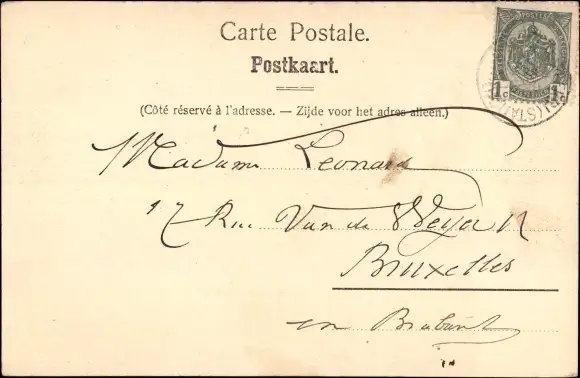 Carte Postale.
Postkaart.
(Côté réservé à l'adresse. — Zijde voor het adres alleen.)
1c 1c
Madame Leonard
17 Rue Van de Weyer
Bruxelles
en Brabant